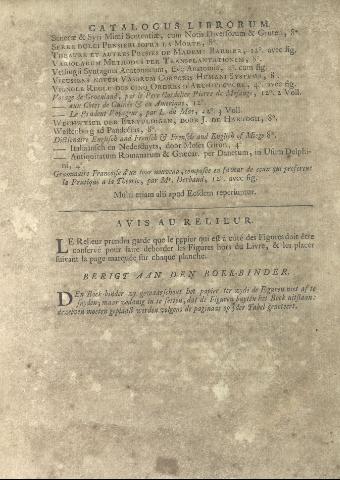 CATALOGUS LIBRORUM.
Senecæ & Syri Mimi Sententiæ, cum Notis Diversorum & Gruteri, 8°
Serre dolci Pensieri sopra la Morte, 8°.
Theatre et autres Poesies de Madem: Barbier, 12°. avec fig.
Variolarum Methodus per Transplantationem, 8°.
Verlingii Syntagma Anatomicum, Ed: Anatomia, 4°. cum fig.
Vieussens novum Vasorum Corporis Humani Systema, 8°.
Vignole Regle des cinq Ordres d'Architecture, 4°. avec fig.
Voyage de Groenland, par le Port Gentilier Pierre de Mésange, 12°. 2 Voll.
aux Côtes de Guinée & en Amerique, 12°.
— Le Prudent Voyageur, par L. du May, 12°. 3 Voll.
Wegwyzer der Eenvuldigen, door J. de Hartogh, 8°.
Westenberg ad Pandectas, 8°.
Dictionaire Englisch and French & French and English of Miege 8°.
— Italiaansch en Nederduyts, door Moses Giron, 4°
— Antiquitatum Romanarum & Græcar. per Danetum, in Usum Delphi-
ni, 4°
Grammaire Françoise d'un tour nouveau, composée en faveur de ceux qui preferent
la Pratique à la Théorie, par Mr. Derbaud, 12°. avec fig.
Multi etiam alii apud Eosdem reperiuntur.
AVIS AU RELIEUR.
LE Relieur prendra garde que le papier qui est à côté des Figures doit être
conservé pour faire deborder les Figures hors du Livre, & les placer
suivant la page marquée sur chaque planche.
BERIGT AAN DEN BOEK-BINDER.
DEn Boek-binder zy gewaarschout het papier ter zyde de Figuren niet af te
snyden; maar zodanig in te setten, dat de Figuren buyten het Boek uitslaan:
dezelven moeten geplaast werden volgens de paginaas op yder Tabel geteekent.